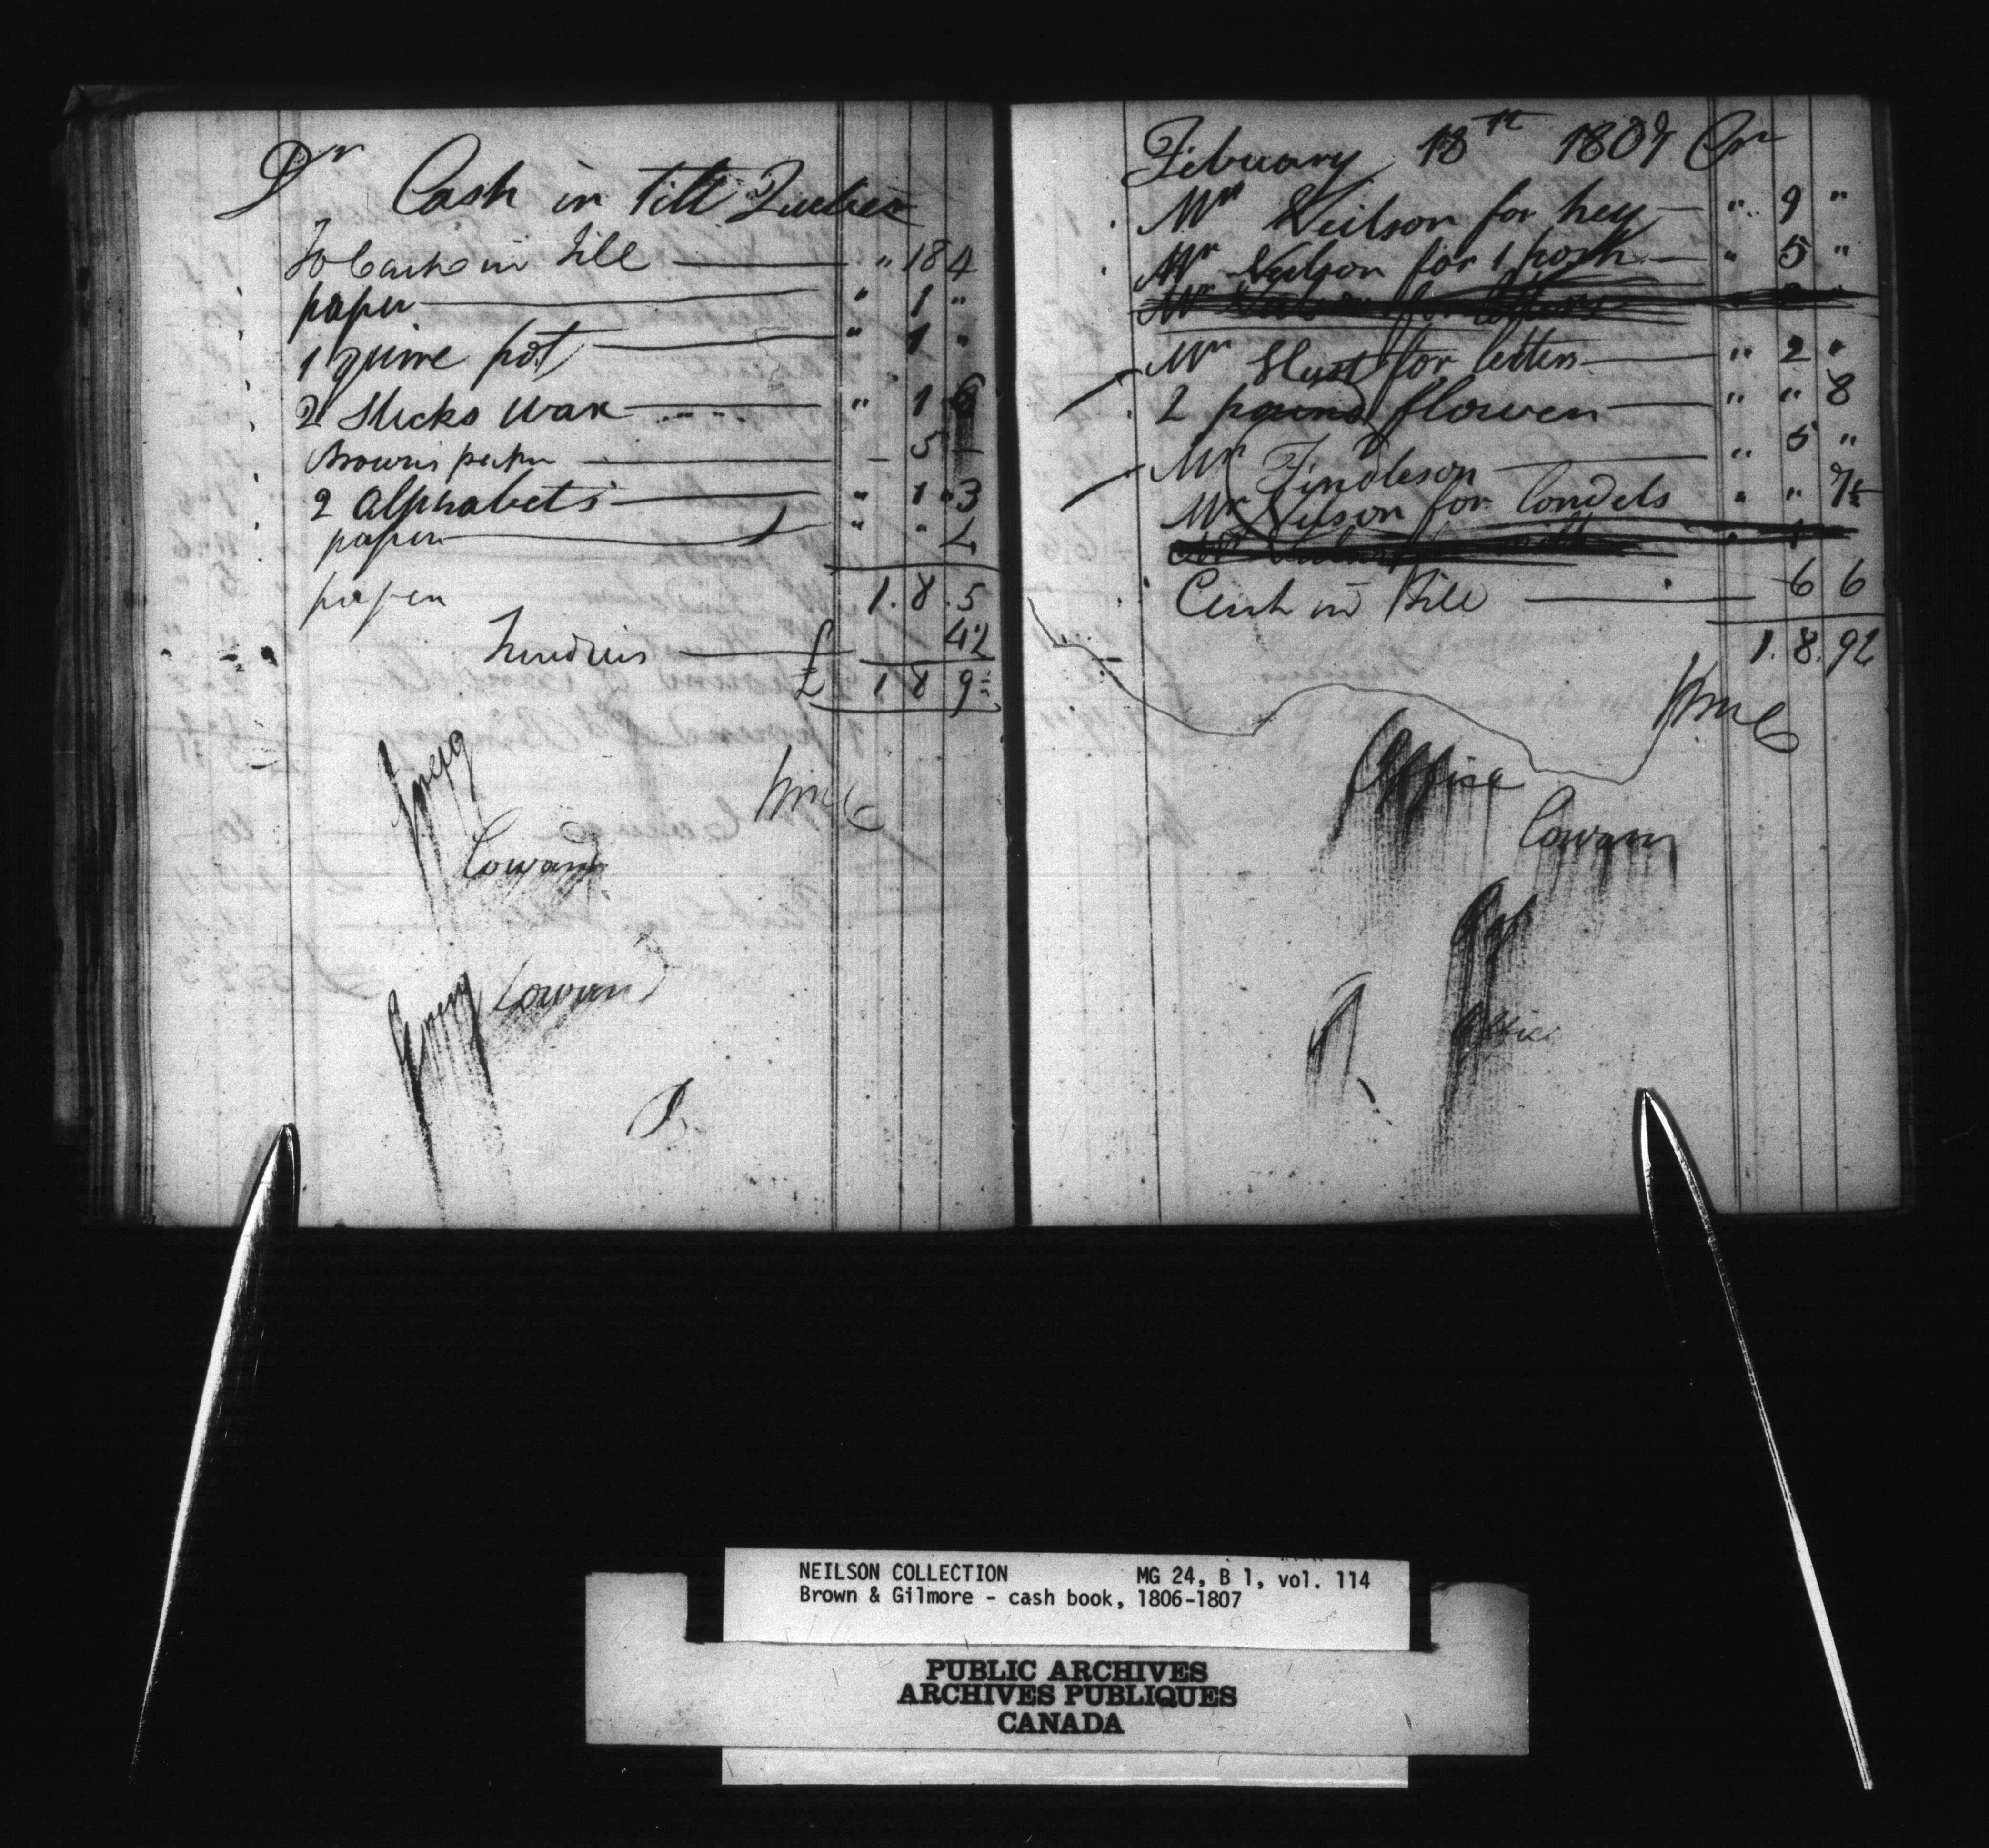 Dr Cash in Till Quebec
To Cash in Till " 18 4
paper " 1 "
1 quire pot " 1 "
2 Sticks Wax " 1 6
Brown paper - 5 -
2 Alphabets " 1 " 3
paper " "
paper 1. 8. 5
Sundries £ 4½
1 8 9½
Gregg
Wm C
Cowan
Gregg Cowan
February 18th 1807 Cr
Mr Neilson for hey " 9 "
Mr Neilson for 1 " 5 "
Mr Neilson for letters
Mr Hust for letters " 2 "
2 pound flower " " 8
Mr Findleson " 5 "
Mr Neilson for Condels " " 7½
Cash in Till 6 6
1. 8. 9½
Wm C
Office
Cowan
Off
Office
NEILSON COLLECTION MG 24, B 1, vol. 114
Brown & Gilmore - cash book, 1806-1807
PUBLIC ARCHIVES
ARCHIVES PUBLIQUES
CANADA